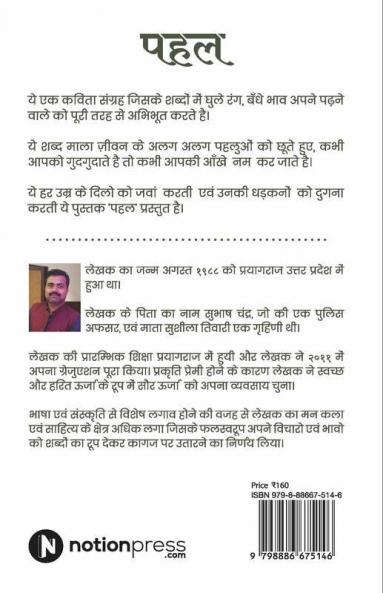 पहल
ये एक कविता संग्रह जिसके शब्दों में घुले रंग, बँधे भाव अपने पढ़ने
वाले को पूरी तरह से अभिभूत करते है।
ये शब्द माला ज़ीवन के अलग अलग पहलुओं को छूते हुए, कभी
आपको गुदगुदाते है तो कभी आपकी आँखे नम कर जाते है।
ये हर उम्र के दिलो को जवां करती एवं उनकी धड़कनों को दुगना
करती ये पुस्तक 'पहल' प्रस्तुत है।
लेखक का जन्म अगस्त १९८८ को प्रयागराज उत्तर प्रदेश में
हुआ था।
लेखक के पिता का नाम सुभाष चंद्र, जो की एक पुलिस
अफसर, एवं माता सुशीला तिवारी एक गृहिणी थी।
लेखक की प्रारम्भिक शिक्षा प्रयागराज में हुयी और लेखक ने २०११ में
अपना ग्रेजुएशन पूरा किया। प्रकृति प्रेमी होने के कारण लेखक ने स्वच्छ
और हरित ऊर्जा के रूप में सौर ऊर्जा को अपना व्यवसाय चुना।
भाषा एवं संस्कृति से विशेष लगाव होने की वजह से लेखक का मन कला
एवं साहित्य के क्षेत्र अधिक लगा जिसके फलस्वरूप अपने विचारो एवं भावो
को शब्दों का रूप देकर कागज पर उतारने का निर्णय लिया।
Price ₹160
ISBN 979-8-88667-514-6
9 798886 675146
N notionpress
.com